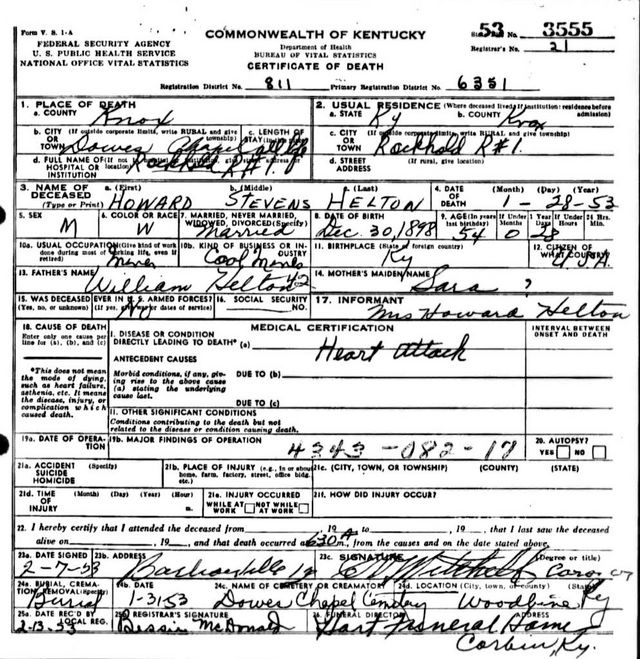 Form V. S. 1-A
FEDERAL SECURITY AGENCY
U. S. PUBLIC HEALTH SERVICE
NATIONAL OFFICE VITAL STATISTICS
COMMONWEALTH OF KENTUCKY
Department of Health
BUREAU OF VITAL STATISTICS
CERTIFICATE OF DEATH
53 No. 3555
Registrar's No. 21
Registration District No. 811 Primary Registration District No. 6351
1. PLACE OF DEATH
a. COUNTY Knox
b. CITY (If outside corporate limits, write RURAL and give township)
OR TOWN Dowes Chapel
c. LENGTH OF STAY
d. FULL NAME OF HOSPITAL OR INSTITUTION Rockhold R#1.
2. USUAL RESIDENCE (Where deceased lived; if institution: residence before admission)
a. STATE Ky b. COUNTY Knox
c. CITY (If outside corporate limits, write RURAL and give township)
OR TOWN Rockhold R#1.
d. STREET ADDRESS (If rural, give location)
3. NAME OF DECEASED (Type or Print) a. (First) HOWARD b. (Middle) STEVENS c. (Last) HELTON
4. DATE OF DEATH (Month) (Day) (Year) 1-28-53
5. SEX M
6. COLOR OR RACE W
7. MARRIED, NEVER MARRIED, WIDOWED, DIVORCED (Specify) Married
8. DATE OF BIRTH Dec. 30, 1898
9. AGE 54 0 28
10a. USUAL OCCUPATION (Give kind of work done during most of working life, even if retired) Miner
10b. KIND OF BUSINESS OR INDUSTRY Coal Mines
11. BIRTHPLACE (State or foreign country) Ky
12. CITIZEN OF WHAT COUNTRY? USA
13. FATHER'S NAME William Helton
14. MOTHER'S MAIDEN NAME Sara ?
15. WAS DECEASED EVER IN U. S. ARMED FORCES? (Yes, no, or unknown) (If yes, give war or dates of service) No
16. SOCIAL SECURITY NO.
17. INFORMANT Mrs Howard Helton
18. CAUSE OF DEATH
Enter only one cause per line for (a), (b), and (c)
*This does not mean the mode of dying, such as heart failure, asthenia, etc. It means the disease, injury, or complication which caused death.
MEDICAL CERTIFICATION
INTERVAL BETWEEN ONSET AND DEATH
I. DISEASE OR CONDITION DIRECTLY LEADING TO DEATH* (a) Heart Attack
ANTECEDENT CAUSES
Morbid conditions, if any, giving rise to the above cause (a) stating the underlying cause last.
DUE TO (b)
DUE TO (c)
II. OTHER SIGNIFICANT CONDITIONS
Conditions contributing to the death but not related to the disease or condition causing death.
19a. DATE OF OPERATION
19b. MAJOR FINDINGS OF OPERATION
4343-082-17
20. AUTOPSY? YES NO
21a. ACCIDENT SUICIDE HOMICIDE (Specify)
21b. PLACE OF INJURY (e.g., in or about home, farm, factory, street, office bldg. etc.)
21c. (CITY, TOWN, OR TOWNSHIP) (COUNTY) (STATE)
21d. TIME OF INJURY (Month) (Day) (Year) (Hour) m.
21e. INJURY OCCURRED WHILE AT WORK NOT WHILE AT WORK
21f. HOW DID INJURY OCCUR?
22. I hereby certify that I attended the deceased from , 19 to , 19 , that I last saw the deceased
alive on , 19 , and that death occurred at 630 A m., from the causes and on the date stated above.
23a. DATE SIGNED 2-7-53
23b. ADDRESS Barbourville
23c. SIGNATURE (Degree or title)
24a. BURIAL, CREMATION, REMOVAL (Specify) Burial
24b. DATE 1-31-53
24c. NAME OF CEMETERY OR CREMATORY Dowes Chapel Cemetery
24d. LOCATION (City, town, or county) Woodbine Ky
25a. DATE REC'D BY LOCAL REG. 2-13-53
25b. REGISTRAR'S SIGNATURE Bessie McDonald
26. FUNERAL DIRECTOR ADDRESS Hart Funeral Home
Corbin, Ky.